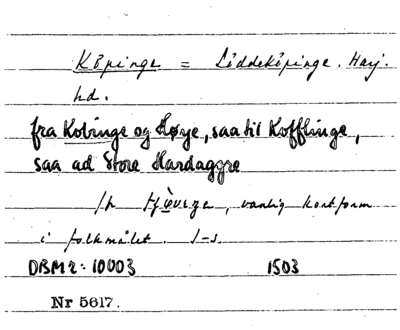 Köpinge = Löddeköpinge. Harj.
hd.
fra Kobinge og Høye, saa til Kofflinge,
saa ad Store Hardaggre
, vanlig kortform
i folkmålet. 1-s.
DBM 2: 10003 1503
Nr 5617.